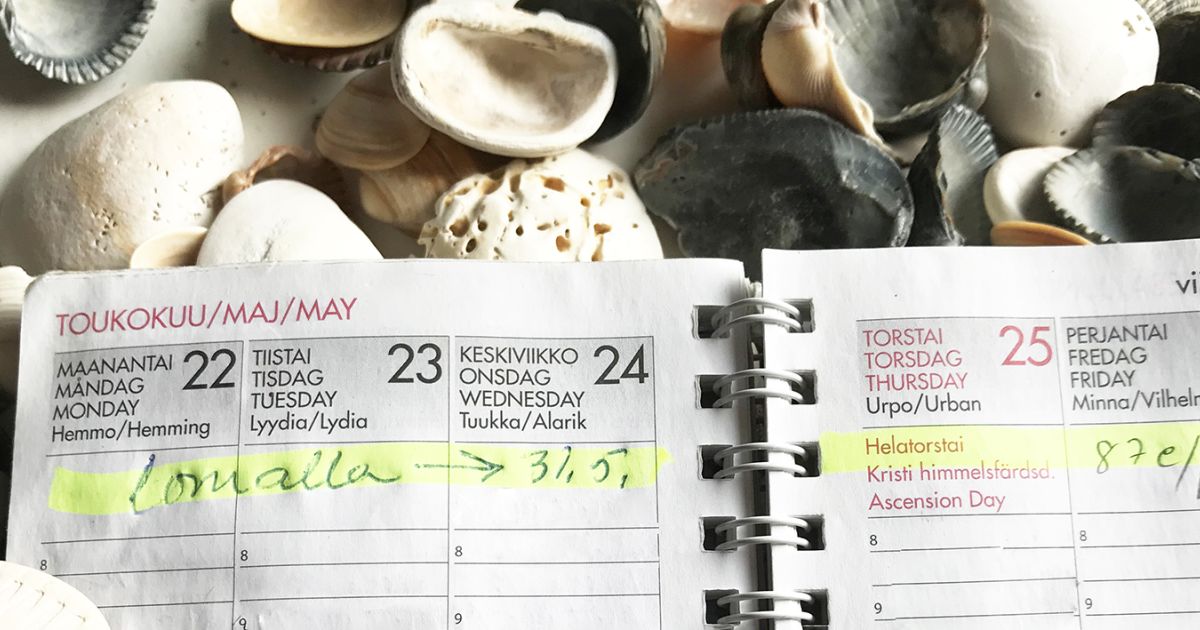 TOUKOKUU/MAJ/MAY
MAANANTAI 22
MÅNDAG
MONDAY
Hemmo/Hemming
TIISTAI 23
TISDAG
TUESDAY
Lyydia/Lydia
KESKIVIIKKO 24
ONSDAG
WEDNESDAY
Tuukka/Alarik
lomalla → 31.5.
8
8
8
9
9
TORSTAI 25
TORSDAG
THURSDAY
Urpo/Urban
Helatorstai
Kristi himmelsfärdsd.
Ascension Day
8
9
PERJANTAI
FREDAG
FRIDAY
Minna/Vilhelm
87e/
8
9